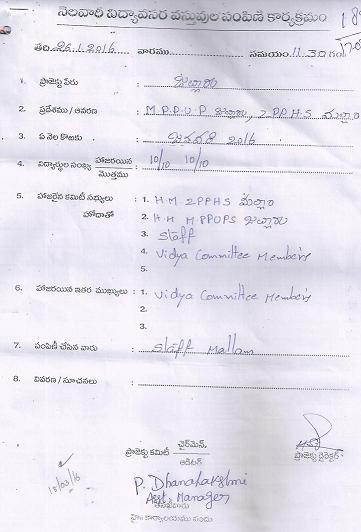 నెలవారీ విద్యావసర వస్తువుల పంపిణి కార్యక్రమం
తేది. 26.1.2016 వారము సమయం 11.30 గం
1. ప్రాజెక్టు పేరు :
2. ప్రదేశము / ఆవరణ : M.P.P.U.P జల్లారం, Z PP H S మల్లాం
3. ఏ నెల కొఱకు : జనవరి 2016
4. విద్యార్థుల సంఖ్య హాజరయిన / మొత్తము : 10/10 10/10
5. హాజరైన కమిటీ సభ్యులు : 1. H M ZPPHS మల్లాం
హోదాతో 2. H.M MPPUPS
3. Staff
4. Vidya Committee Members
5.
6. హాజరయిన ఇతర ముఖ్యులు : 1. Vidya Committee Members
2.
3.
7. పంపిణీ చేసిన వారు : Staff Mallam
8. వివరణ / సూచనలు :
ఛైర్మెన్,
ప్రాజెక్టు కమిటీ ప్రాజెక్టు డైరెక్టర్
ఆడిటర్
P. Dhanalakshmi
Asst. Manager